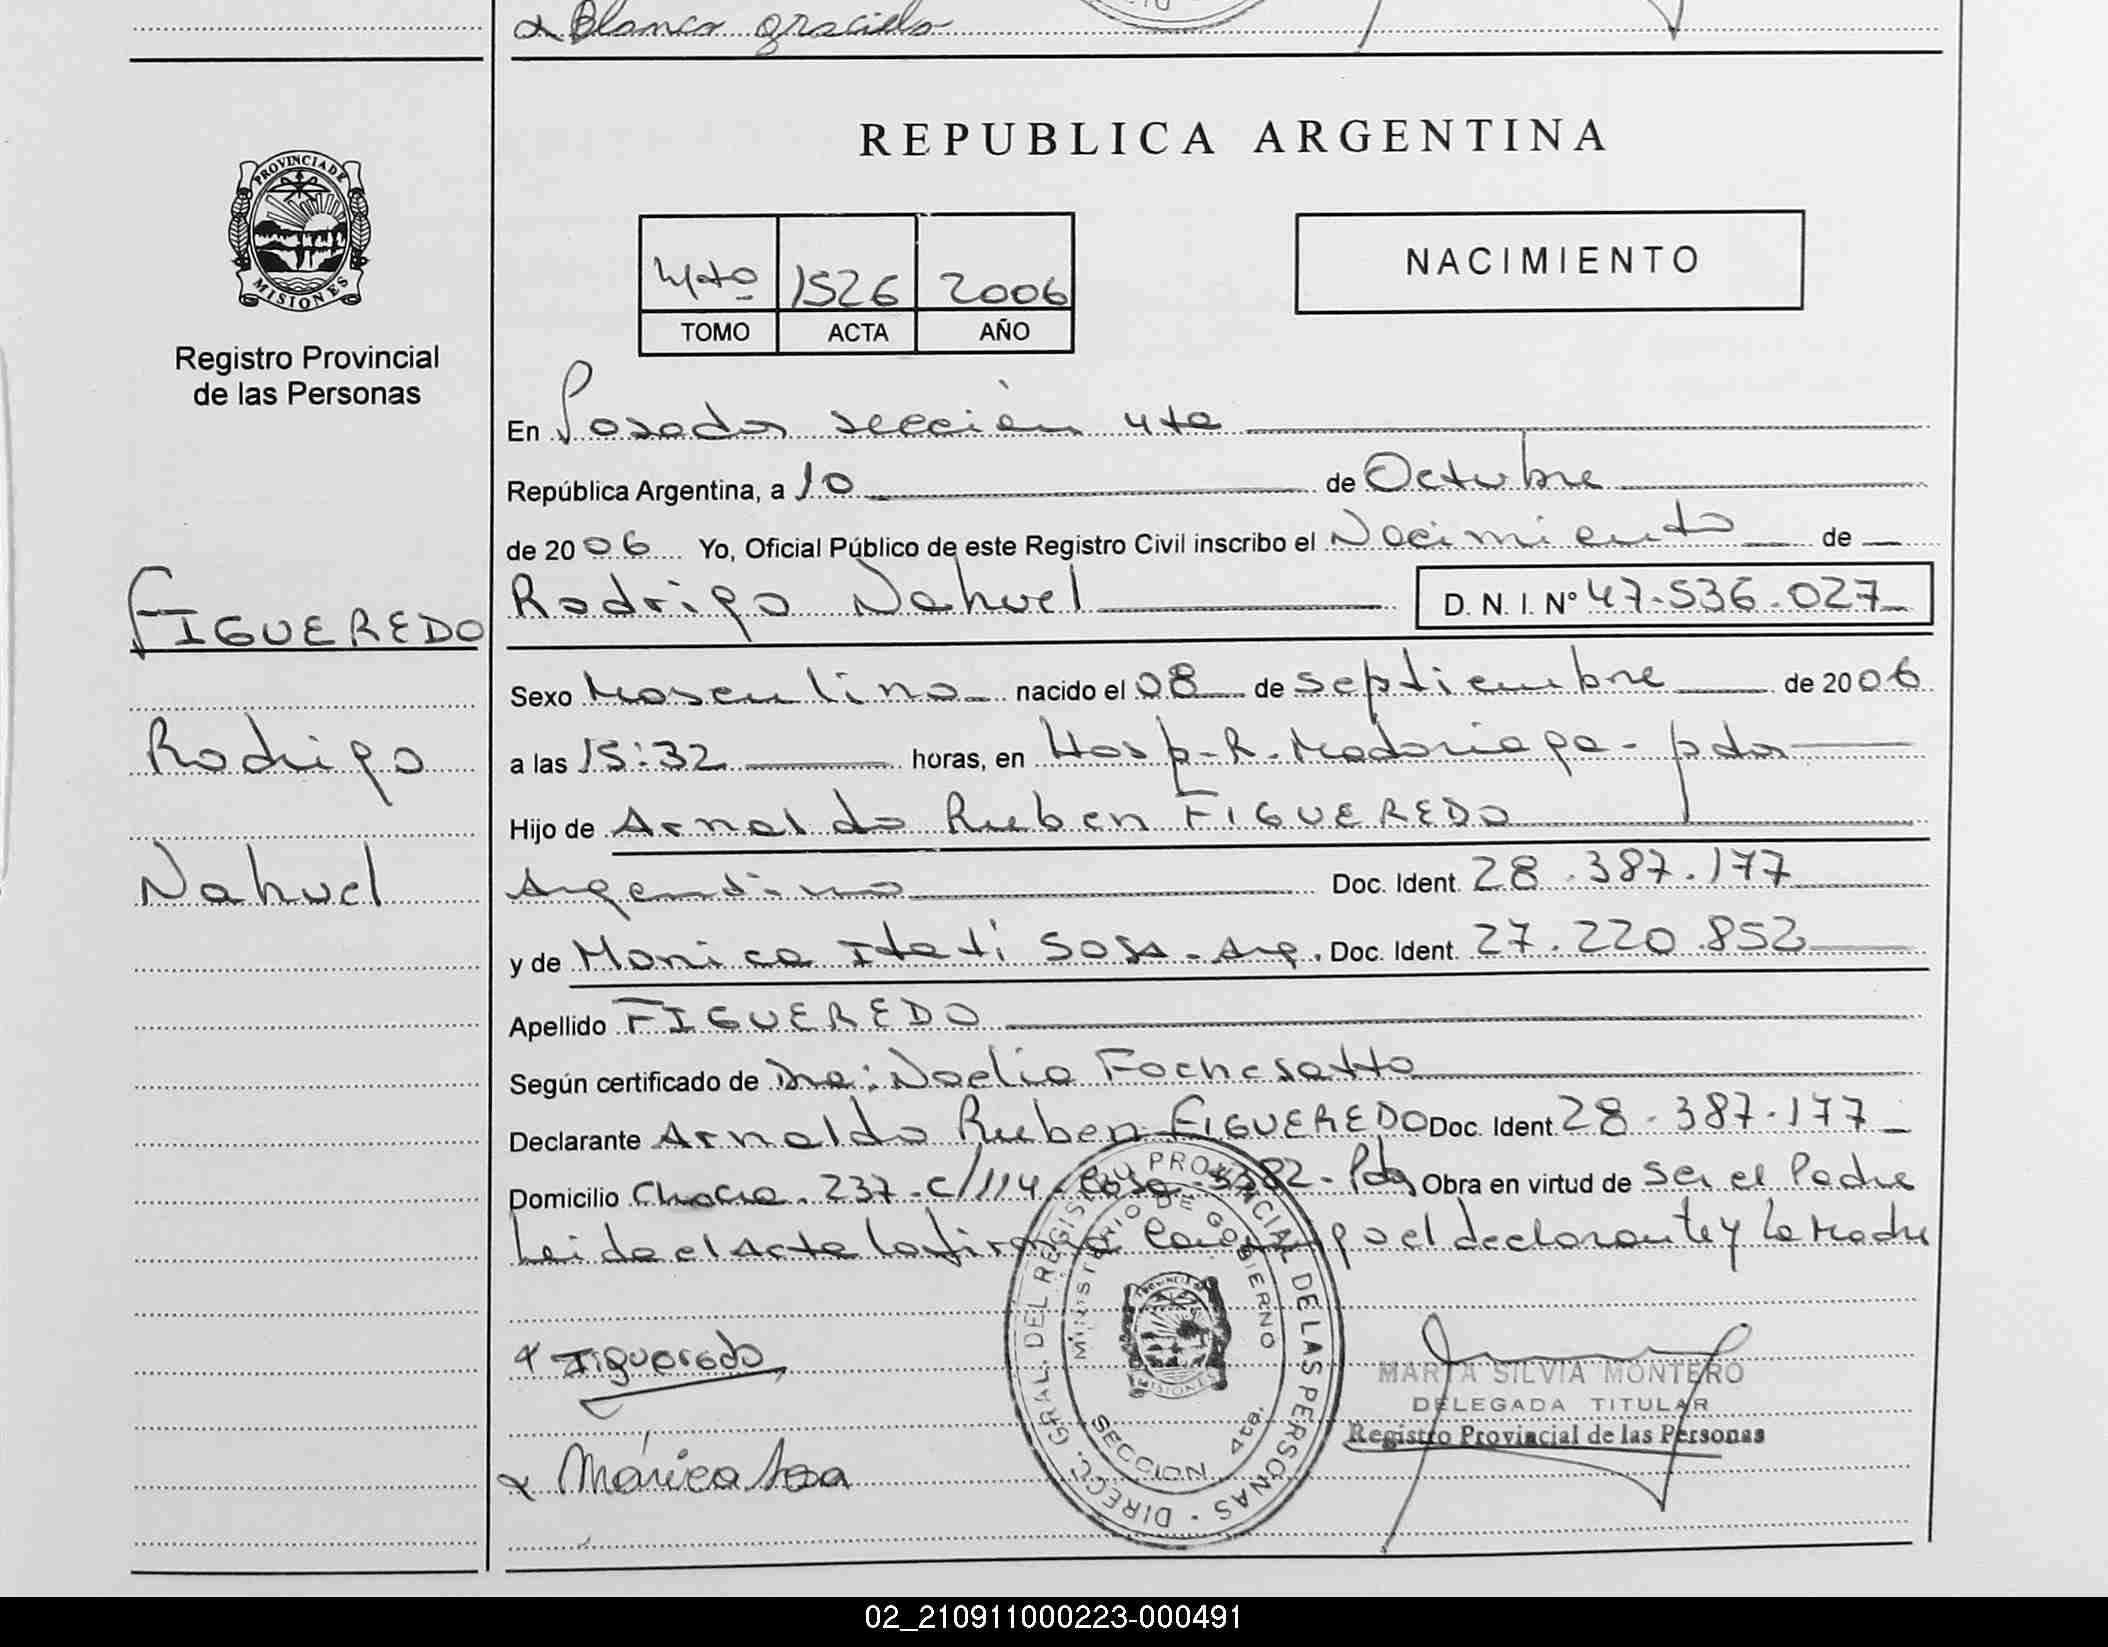 Blanca graciela
PROVINCIA DE
MISIONES
Registro Provincial
de las Personas
FIGUEREDO
Rodrigo
Nahuel
REPUBLICA ARGENTINA
4to 1526 2006
TOMO ACTA AÑO
NACIMIENTO
En Posadas sección 4ta
República Argentina, a 10 de Octubre
de 2006 Yo, Oficial Público de este Registro Civil inscribo el Nacimiento de
Rodrigo Nahuel D. N. I. Nº 47.536.027
Sexo Masculino nacido el 08 de septiembre de 2006
a las 15:32 horas, en Hosp. R. Madariaga - pdas
Hijo de Arnaldo Ruben FIGUEREDO
Argentino Doc. Ident. 28.387.177
y de Monica Itati SOSA - Arg. Doc. Ident. 27.220.852
Apellido FIGUEREDO
Según certificado de Dra: Noelia Fochesatto
Declarante Arnaldo Ruben FIGUEREDO Doc. Ident. 28.387.177
Domicilio Chacra. 237 - c/114 - Casa - 3382 - Pdas Obra en virtud de ser el Padre
Leida el Acta la firman conmigo el declarante y la Madre
Figueredo
Mónica Sosa
DIRECC. GRAL. DEL REGISTRO PROVINCIAL DE LAS PERSONAS
MINISTERIO DE GOBIERNO
SECCION 4ta.
MARTA SILVIA MONTERO
DELEGADA TITULAR
Registro Provincial de las Personas
02_210911000223-000491